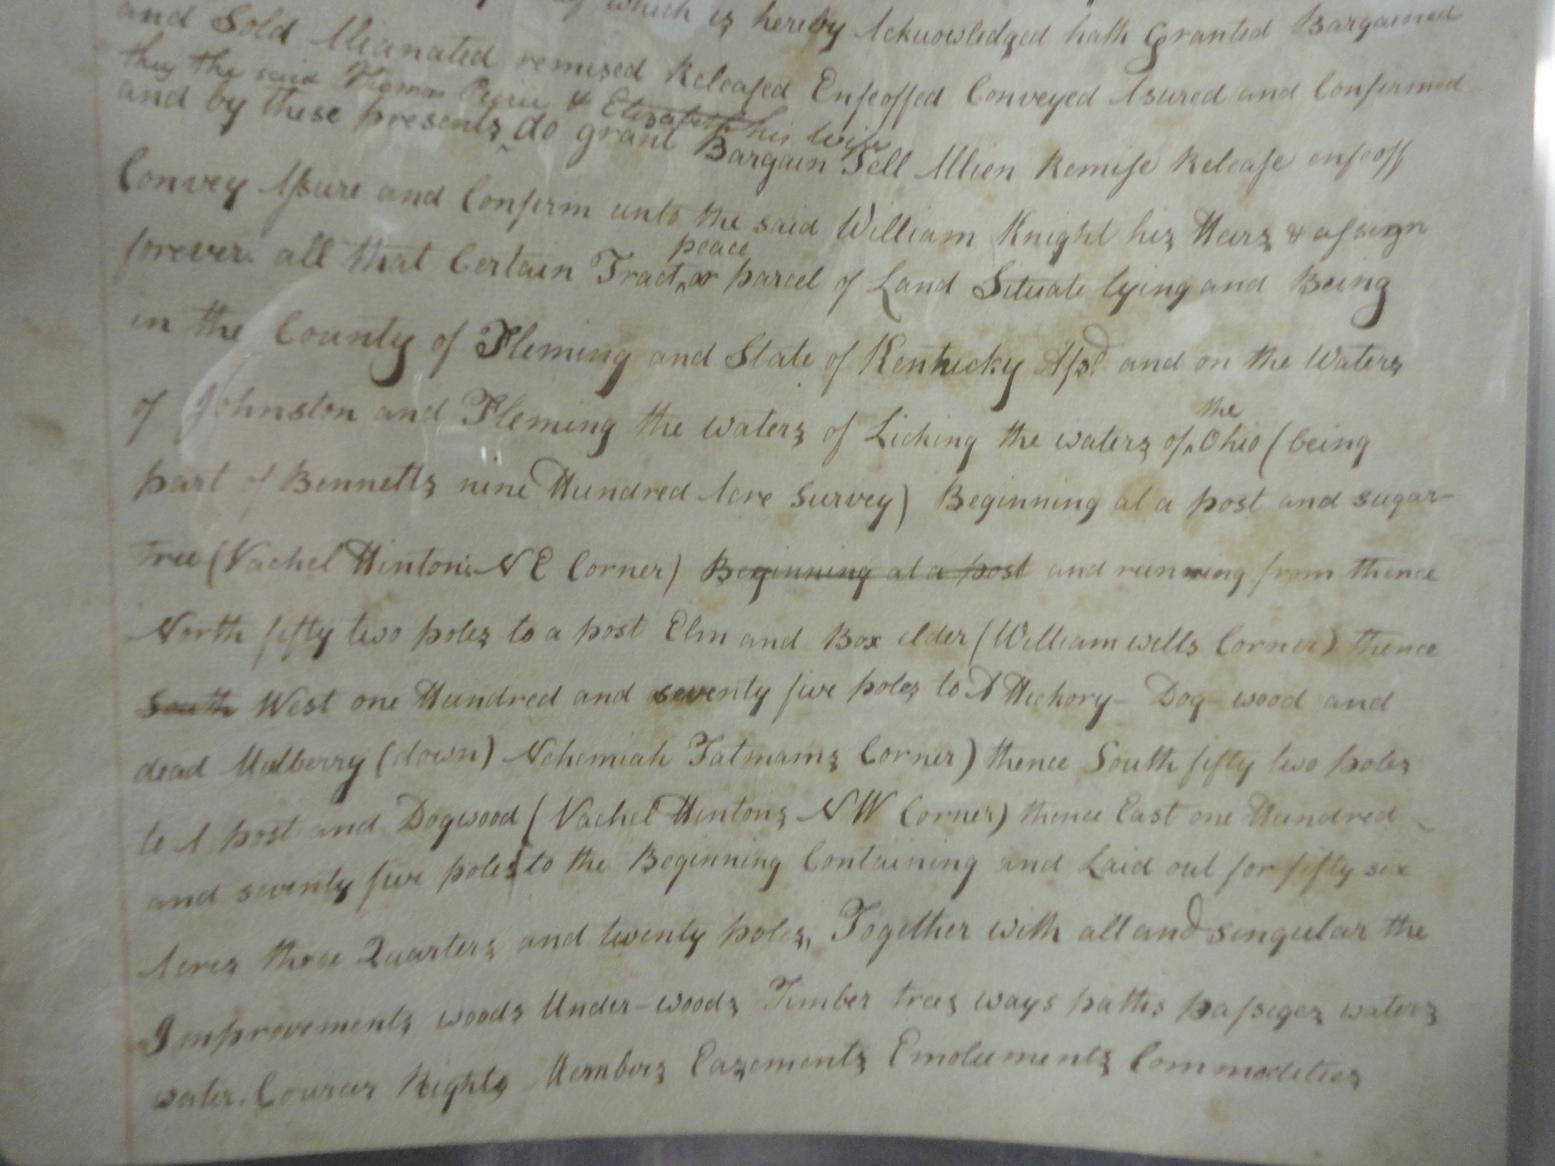 which is hereby Acknowledged hath Granted Bargained
and Sold Alianated remised Releases Enfeoffed Conveyed Asured and Confirmed
they the said Thomas & Elizabeth his wife
and by these presents do grant Bargain Sell Allien Remise Release enfeoff
Convey Assure and Confirm unto the said William Knight his Heirs & assign
peace
forever. all that Certain Tract, or parcel of Land Situate lying and Being
in the County of Fleming and State of Kentucky Afsd and on the Waters
the
of Johnston and Fleming the waters of Licking the waters of Ohio (being
part of Bennetts nine Hundred Acre Survey) Beginning at a post and sugar
tree (Vachel Hintons N E Corner) Beginning at a post and running from thence
North fifty two poles to a post Elm and Box elder (William wells Corner) thence
South West one Hundred and seventy five poles to A Hickory - Dog-wood and
dead Mulberry (down) Nehemiah Tatmams Corner) thence South fifty two poles
to A post and Dogwood (Vachel Hintons NW Corner) thence East one Hundred
and seventy five poles to the Beginning Containing and Laid out for fifty six
Acres three Quarters and twenty poles, Together with all and singular the
Improvements woods Under-woods Timber trees ways paths passeges waters
water. Courses Rights Members Eazements Emoluments Commodities